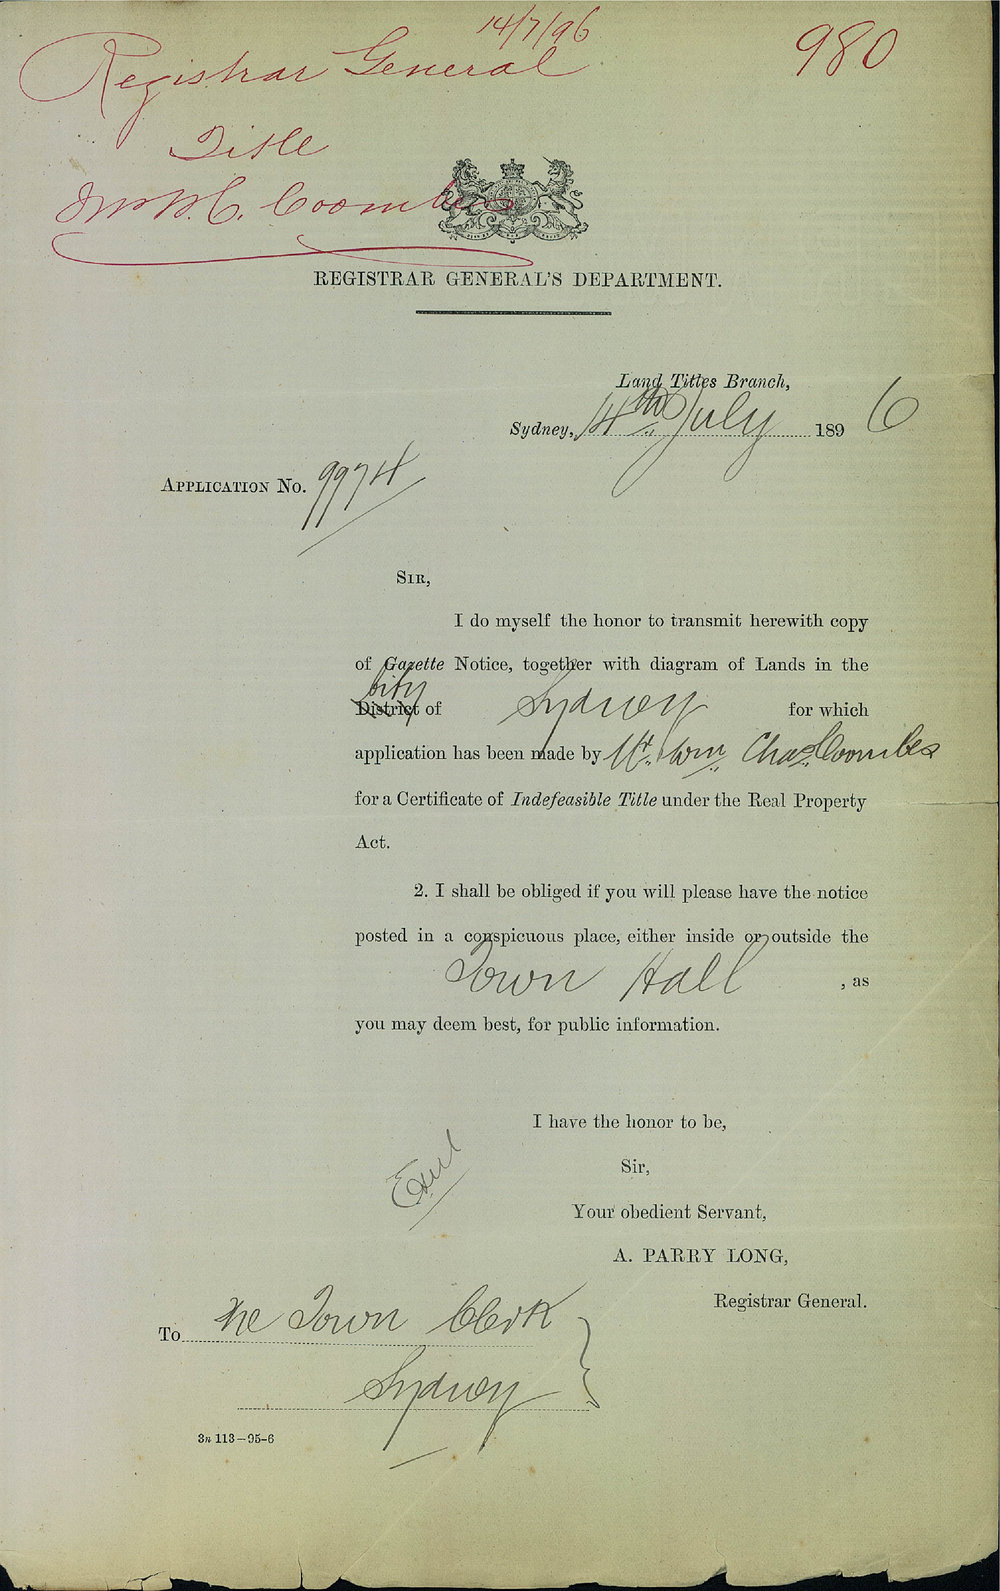 14/7/96
Registrar General
980
Title
W. C. Coombes
REGISTRAR GENERAL'S DEPARTMENT.
Land Titles Branch,
Sydney, 14th July 1896
APPLICATION No. 9974
SIR,
I do myself the honor to transmit herewith copy
of Gazette Notice, together with diagram of Lands in the
City
District of Sydney for which
application has been made by Mr. Wm. Chas. Coombes
for a Certificate of Indefeasible Title under the Real Property
Act.
2. I shall be obliged if you will please have the notice
posted in a conspicuous place, either inside or outside the
Town Hall, as
you may deem best, for public information.
I have the honor to be,
Sir,
Your obedient Servant,
A. PARRY LONG,
Registrar General.
To The Town Clerk
Sydney
3n 113—95-6